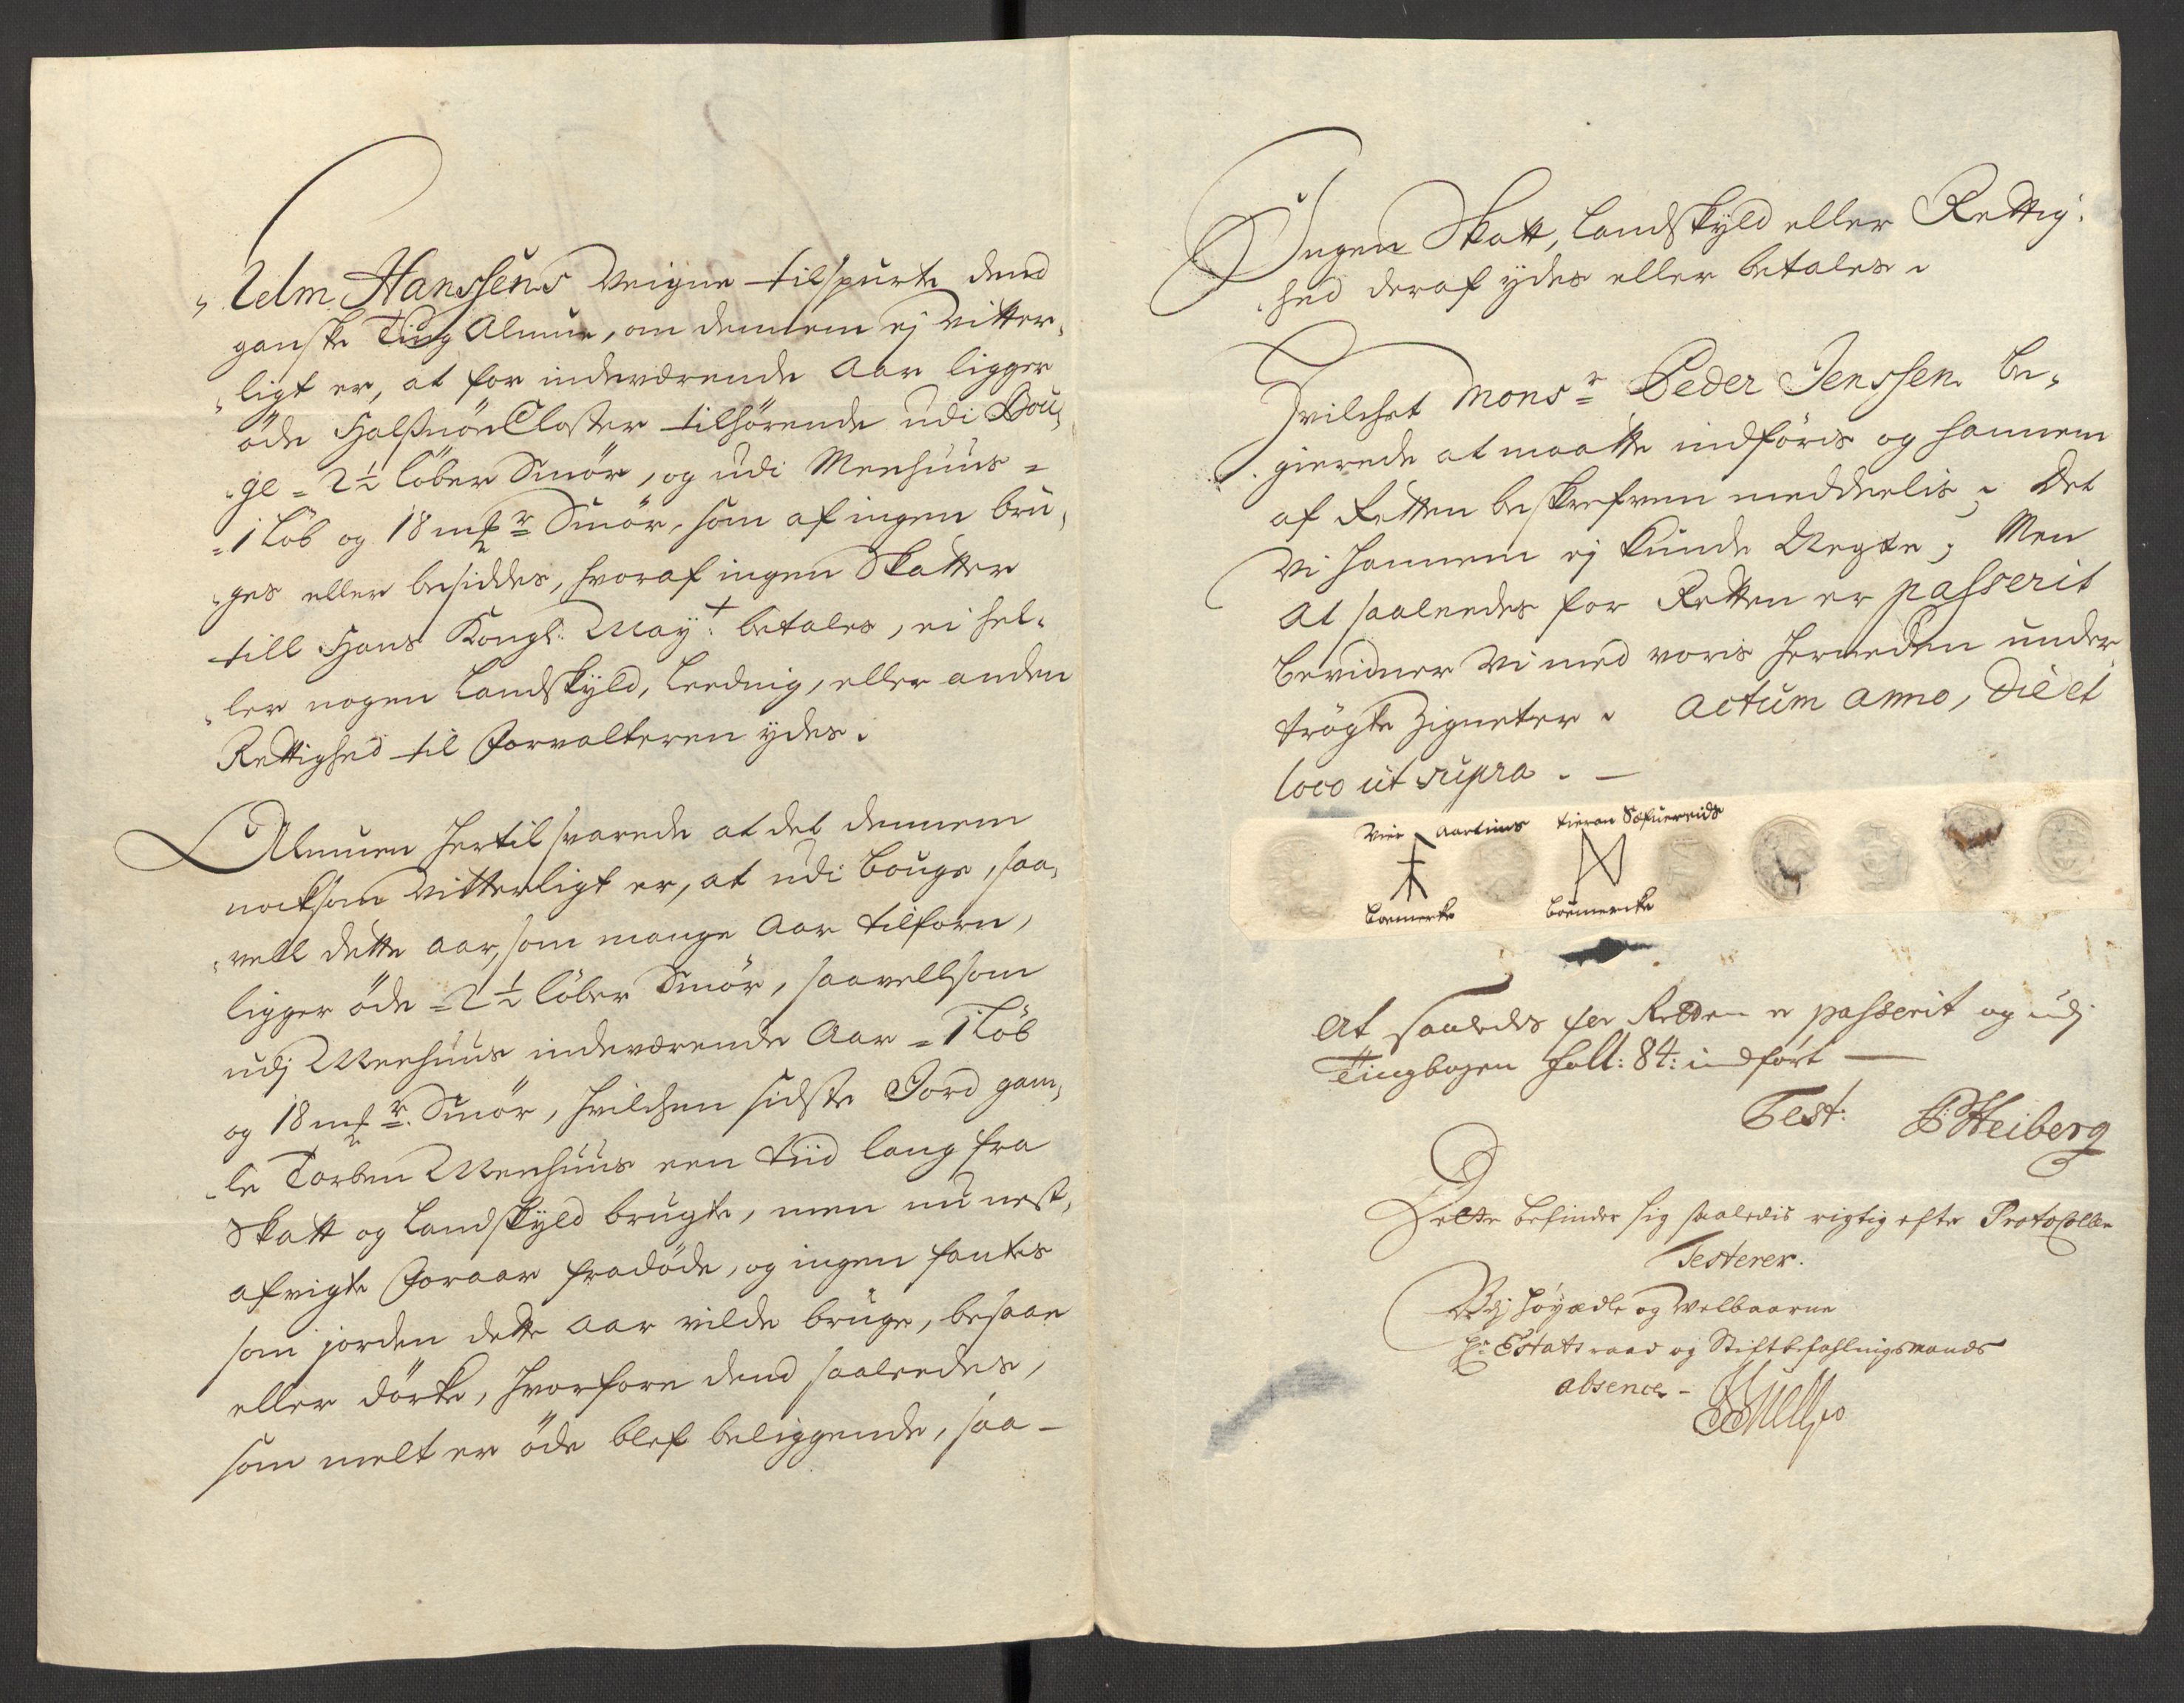 "Uelm Hanssens Veigne tilspurte dend
ganske Ting Almue, om dennem ej vitter,
"ligt er, at for indeværende Aar ligger
öde Halsnöe Closter tilhörende udi Bou,
"ge = 2½ löber Smör, og udi Meehuus =
= 1 Löb og 18 mkr Smör, som af ingen bru,
"ges eller besiddes, hvoraf ingen Skatter
till Hans Kongl: Mayt: betales, ei hel,
"ler nogen Landskyld, Leeding, eller anden
Rettighed til Forvalteren ydes.
Almuen hertil svarede at det dennem
nocksom vitterligt er, at udi Bouge, saa,
"vell dette aar, som mange Aar tilforn,
ligger öde = 2½ löber Smör, saavellsom
udj Meehuus indeværende Aar = 1 Löb
og 18 mkr. Smör, hvilchen sidste Jord gam,
"le Torben Meehuus een tiid lang fra
Skatt og Landskyld brugte, men nu nest,
afvigte Foraar fradöde, og ingen fantes
som jorden dette Aar vilde bruge, besaae
eller dörke, hvorfore dend saaleedes,
som melt er öde blef beliggende, saa-
Ingen Skatt, Landskyld eller Rettig,
"hed deraf ydes eller betales.
Hvilchet Monsr Peder Jenssen be,
"gierede at maatte indföris og hannem
af Retten beskrefven meddeelis; Det
Vi hannem ej kunde Negte; Men
At saaleedes for Retten er passerit
bevidner Vi med voris herneden under
trögte Zigneter. Actum anno, die et
loco ut supra. -
Aartuns
boemerke
boumercke
At saaledes for Retten er passerit og udj
Tingbogen foll: 84: indfört —
Test: Heiberg
Dette befindes sig saaledis rigtig efter Protocollen
Testerer.
Udj Höyædle og Welbaarne
Hr Estatsraad og Stiftbefahlingsmands
absence -